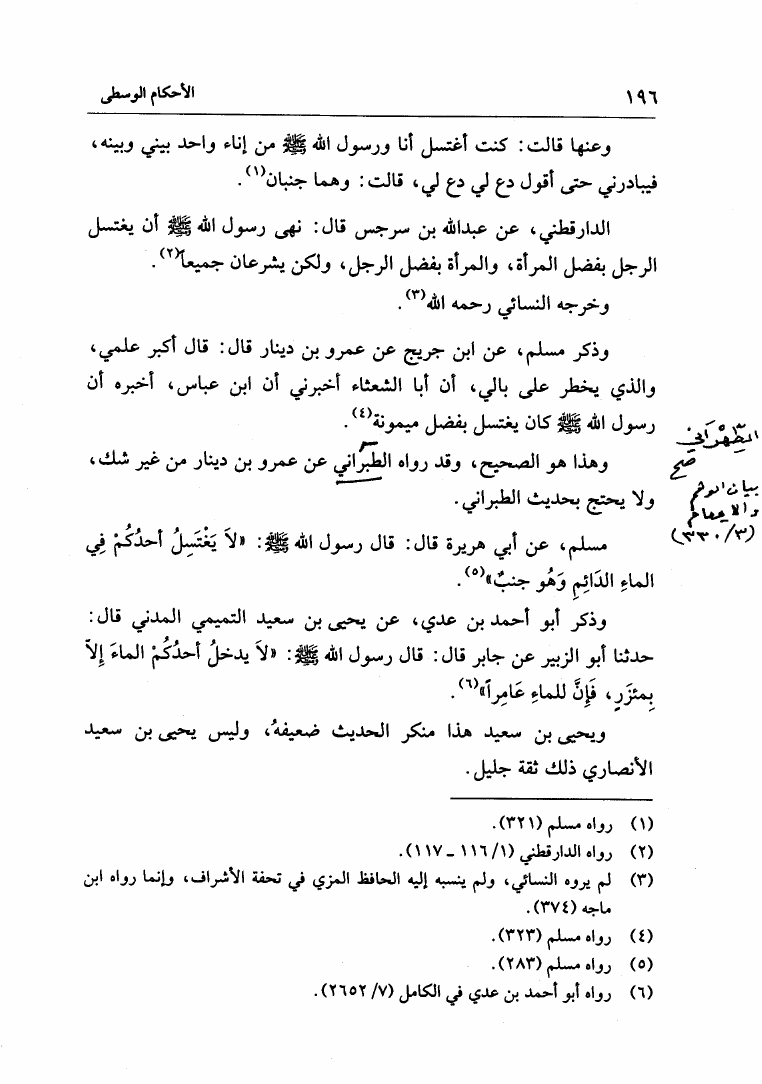 ١٩٦
الأحكام الوسطى
وعنها قالت: كنت أغتسل أنا ورسول الله ﷺ من إناء واحد بيني وبينه،
فيبادرني حتى أقول دع لي دع لي، قالت: وهما جنبان(١).
الدارقطني، عن عبدالله بن سرجس قال: نهى رسول الله ﷺ أن يغتسل
الرجل بفضل المرأة، والمرأة بفضل الرجل، ولكن يشرعان جميعاً(٢).
وخرجه النسائي رحمه الله(٣).
وذكر مسلم، عن ابن جريج عن عمرو بن دينار قال: قال أكبر علمي،
والذي يخطر على بالي، أن أبا الشعثاء أخبرني أن ابن عباس، أخبره أن
رسول الله ﷺ كان يغتسل بفضل ميمونة(٤).
وهذا هو الصحيح، وقد رواه الطبراني عن عمرو بن دينار من غير شك،
ولا يحتج بحديث الطبراني.
الطِّهْرَاني
صح
بيان الوهم
والايهام
(٣/ ٣٣٠)
مسلم، عن أبي هريرة قال: قال رسول الله ﷺ: «لاَ يَغْتَسِلُ أحدُكُمْ فِي
الماءِ الدَائِمِ وَهُو جنبٌ»(٥).
وذكر أبو أحمد بن عدي، عن يحيى بن سعيد التميمي المدني قال:
حدثنا أبو الزبير عن جابر قال: قال رسول الله ﷺ: «لاَ يدخلُ أحدُكُمْ الماءَ إلاّ
بِمئزَرٍ، فَإنَّ للماءِ عَامِراً»(٦).
ويحيى بن سعيد هذا منكر الحديث ضعيفهُ، وليس يحيى بن سعيد
الأنصاري ذلك ثقة جليل.
(١) رواه مسلم (٣٢١).
(٢) رواه الدارقطني (١/ ١١٦ ـ ١١٧).
(٣) لم يروه النسائي، ولم ينسبه إليه الحافظ المزي في تحفة الأشراف، وإنما رواه ابن
ماجه (٣٧٤).
(٤) رواه مسلم (٣٢٣).
(٥) رواه مسلم (٢٨٣).
(٦) رواه أبو أحمد بن عدي في الكامل (٧/ ٢٦٥٢).